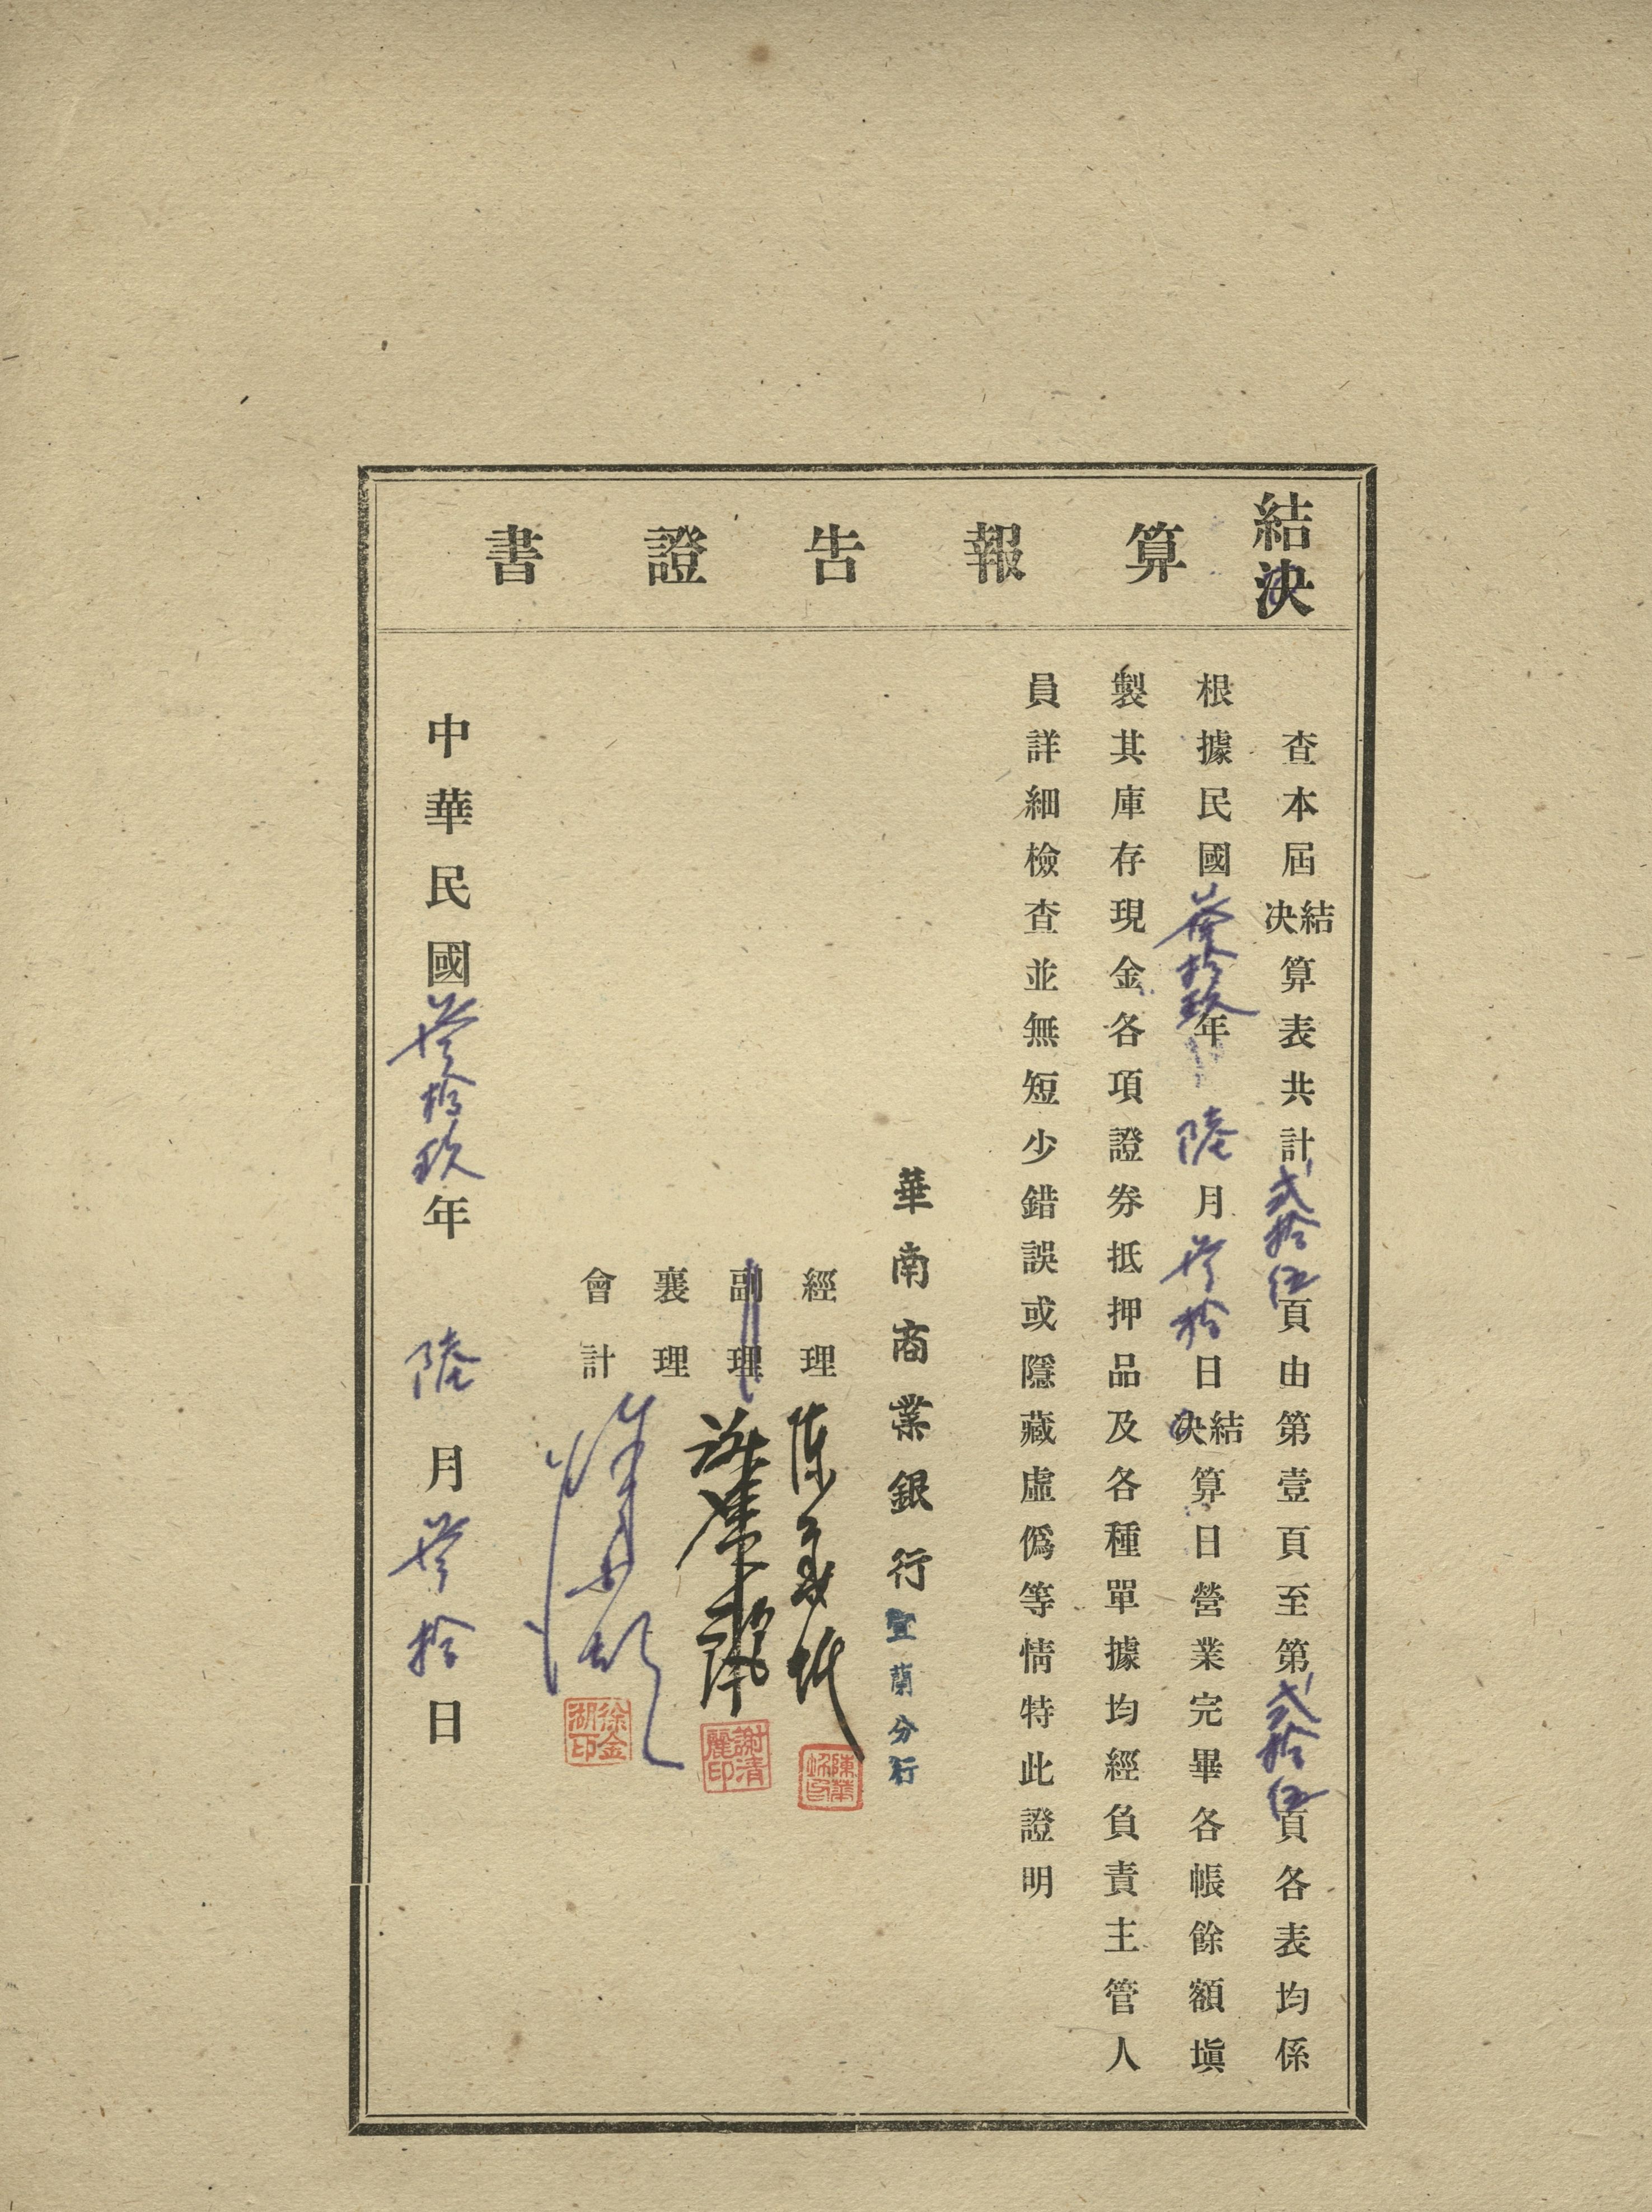 結決算報告證書
查本屆結決算表共計貳拾伍頁由第壹頁至第貳拾伍頁各表均係
根據民國叁拾玖年陸月叁拾日結決算日營業完畢各帳餘額塡
製其庫存現金各項證券抵押品及各種單據均經負責主管人
員詳細檢查並無短少錯誤或隱藏虛僞等情特此證明
華南商業銀行宜蘭分行
經理
陳
副理
襄理
謝清麗印
會計
徐金湖印
中華民國叁拾玖年陸月叁拾日